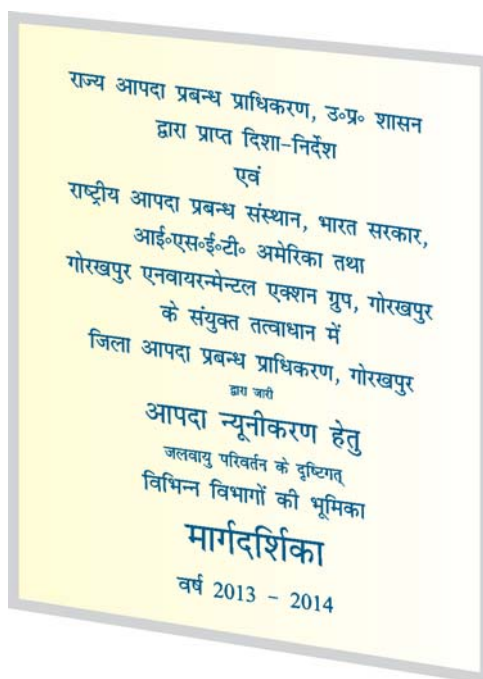 राज्य आपदा प्रबन्ध प्राधिकरण, उ॰प्र॰ शासन
द्वारा प्राप्त दिशा-निर्देश
एवं
राष्ट्रीय आपदा प्रबन्ध संस्थान, भारत सरकार,
आई॰एस॰ई॰टी॰ अमेरिका तथा
गोरखपुर एनवायरन्मेन्टल एक्शन ग्रुप, गोरखपुर
के संयुक्त तत्वाधान में
जिला आपदा प्रबन्ध प्राधिकरण, गोरखपुर
द्वारा जारी
आपदा न्यूनीकरण हेतु
जलवायु परिवर्तन के दृष्टिगत्
विभिन्न विभागों की भूमिका
मार्गदर्शिका
वर्ष 2013 - 2014